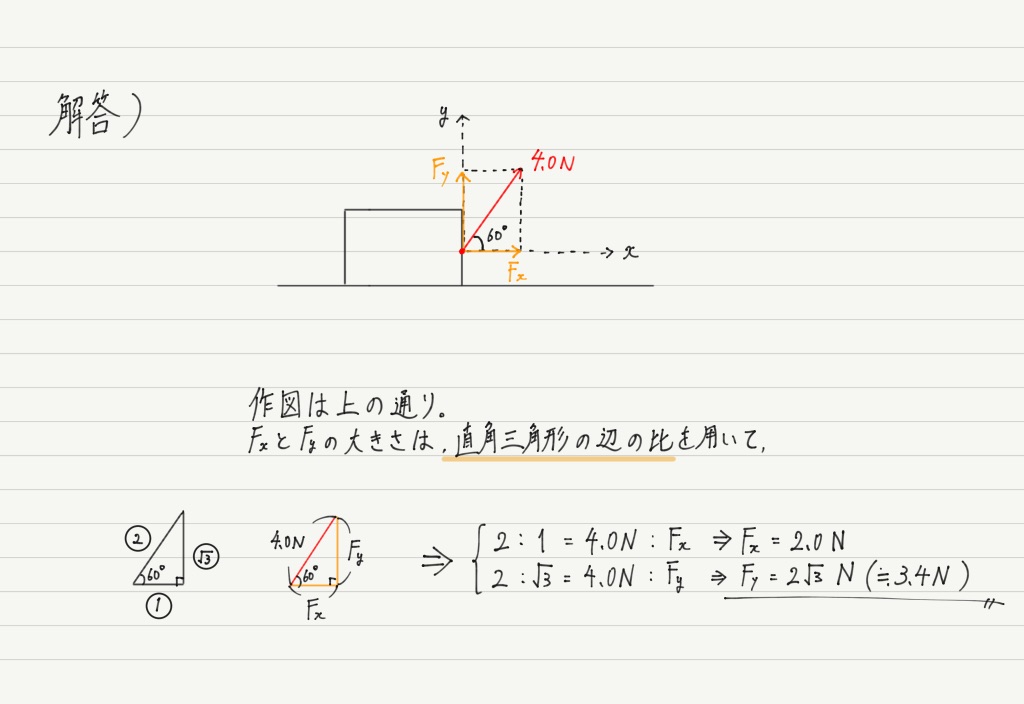 解答)
y
Fy
4.0N
60°
x
Fx
作図は上の通り。
FxとFyの大きさは、直角三角形の辺の比を用いて、
② √3 60° ①
4.0N Fy 60° Fx
⇒ { 2 : 1 = 4.0N : Fx ⇒ Fx = 2.0 N
2 : √3 = 4.0N : Fy ⇒ Fy = 2√3 N (≒3.4N)